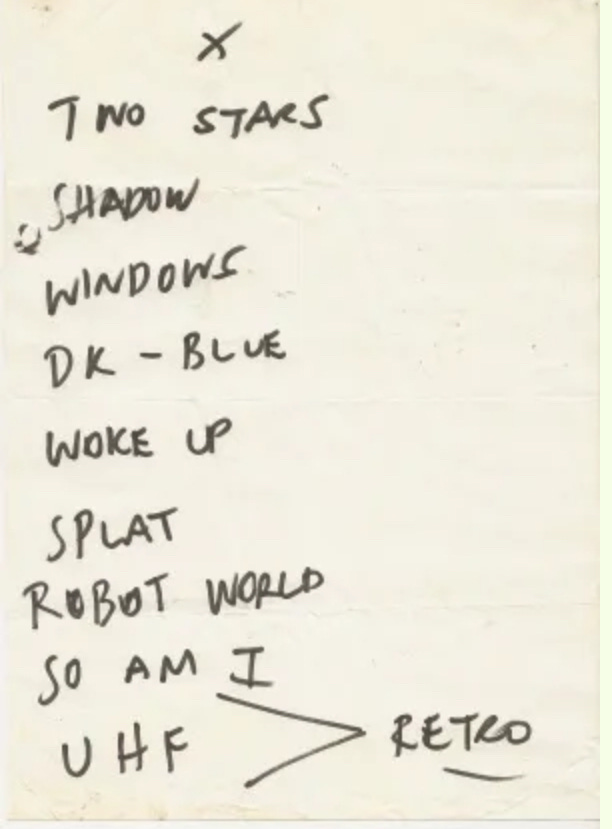 X
TWO STARS
SHADOW
WINDOWS
DK - BLUE
WOKE UP
SPLAT
ROBOT WORLD
SO AM I
UHF > RETRO